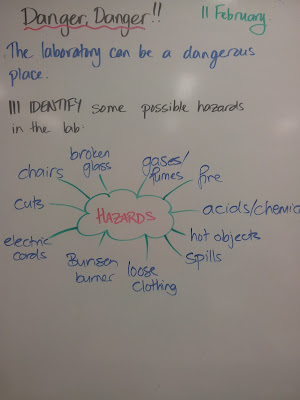 Danger, Danger!!
11 February
The laboratory can be a dangerous
place.
||| IDENTIFY some possible hazards
in the lab:
broken
glass
gases/
fumes
chairs
fire
cuts
HAZARDS
acids/chemic
electric
cords
hot objects
Bunsen
burner
loose
clothing
spills